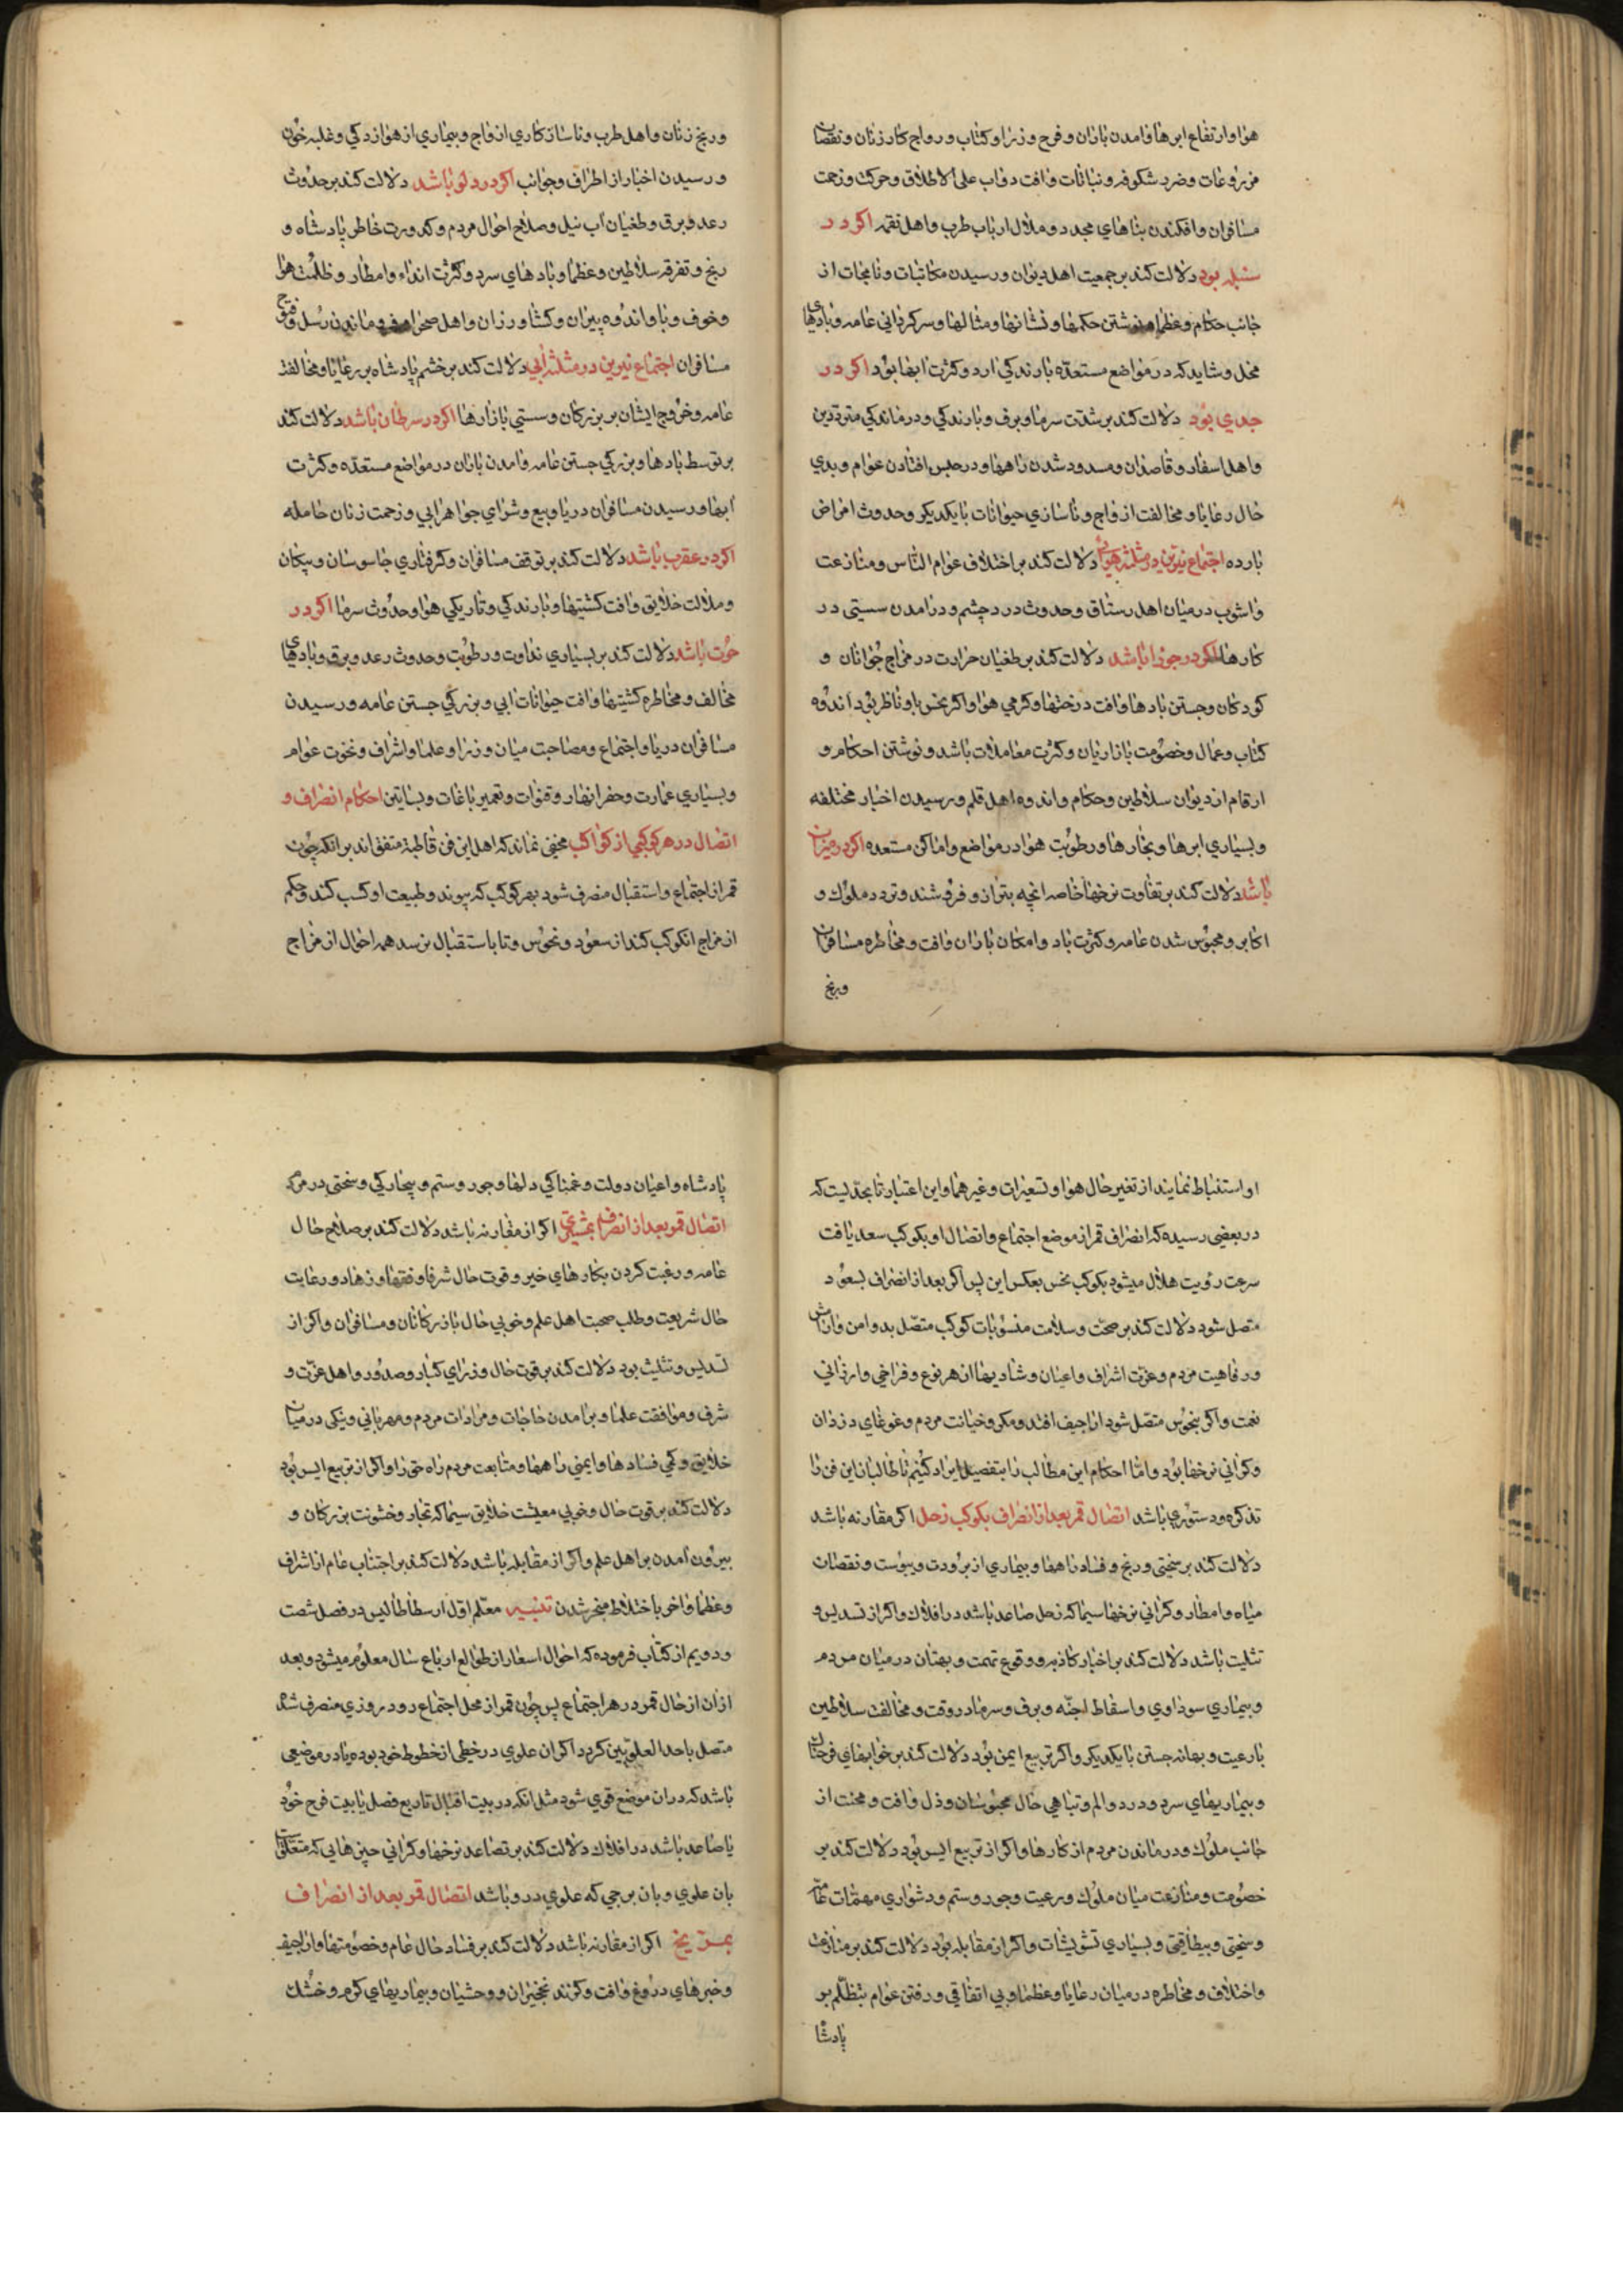 هوا و ارتفاع ابرها و امدن باران و فرح وزرا و كتاب و رواج كار زنان و نقصان
مزروعات و ضرر شكوفه و نباتات و افت دواب على الاطلاق و حركت و زحمت
مسافران و افكندن بناهاي مجدد و ملال ارباب طرب و اهل نغمه اكر در
سنبله بود دلالت كند بر جمعيت اهل ديوان و رسيدن مكاتبات و نامجات از
جانب حكام و عظما و نوشتن حكمها و نشانها و مثالها و سركرداني عامه و بادهاي
مخل و شايد كه در مواضع مستعده بارندكي ارد و كثرت ابها بود اكر در
جدي بود دلالت كند بر شدت سرما و برف و بارندكي و درماندكي مترددين
و اهل اسفار و قاصدان و مسدود شدن راهها و در حبس افتادن عوام و بدي
حال رعايا و مخالفت ازواج و ناسازي حيوانات با يكديكر و حدوث امراض
بارده اجتماع نيرين در مثلثه هوائي دلالت كند بر اختلاف عوام الناس و منازعت
و اشوب در ميان اهل رستاق و حدوث درد چشم و در امدن سستي در
كارها اكر در جوزا باشد دلالت كند بر طغيان حرارت در مزاج جوانان و
كودكان و جستن بادها و افت درختها و كرمي هوا و اكر نحس باو ناظر بود اندوه
كتاب و عمال و خصومت بازاريان و كثرت معاملات باشد و نوشتن احكام و
ارقام از ديوان سلاطين و حكام و اندوه اهل قلم و رسيدن اخبار مختلفه
و بسياري ابرها و بخارها و رطوبت هوا در مواضع و اماكن مستعده اكر در ميزان
باشد دلالت كند بر تفاوت نرخها خاصه انچه بترازو فروشند و تردد ملوك و
اكابر و محبوس شدن عامه و كثرت باد و امكان باران و افت و مخاطره مسافران
و رنج
و رنج زنان و اهل طرب و ناسازكاري ازواج و بيماري از هوازدكي و غلبه خون
و رسيدن اخبار از اطراف و جوانب اكر در دلو باشد دلالت كند بر حدوث
رعد و برق و طغيان اب نيل و صلاح احوال مردم و كدورت خاطر پادشاه و
رنج و تفرقه سلاطين و عظما و بادهاي سرد و كثرت انداء و امطار و ظلمت هوا
و خوف و با و اندوه پيران و كشاورزان و اهل صحرا و فرو ماندن رسل و فيوج
مسافران اجتماع نيرين در مثلثه ابي دلالت كند بر خشم پادشاه بر رعايا و مخالفت
عامه و خروج ايشان بر بزركان و سستي بازارها اكر در سرطان باشد دلالت كند
بر توسط بادها و بزركي جستن عامه و امدن باران در مواضع مستعده و كثرت
ابها و رسيدن مسافران دريا و بيع و شراي جواهر ابي و زحمت زنان حامله
اكر در عقرب باشد دلالت كند بر توقف مسافران و كرفتاري جاسوسان و پيكان
و ملالت خلايق و افت كشتيها و بارندكي و تاريكي هوا و حدوث سرما اكر در
حوت باشد دلالت كند بر بسياري نداوت و رطوبت و حدوث رعد و برق و بادهاي
مخالف و مخاطره كشتيها و افت حيوانات ابي و بزركي جستن عامه و رسيدن
مسافران دريا و اجتماع و مصاحبت ميان وزرا و علما و اشراف و نخوت عوام
و بسياري عمارت و حفر انهار و قنوات و تعمير باغات و بساتين احكام انصراف و
اتصال در هر كوكبي از كواكب مخفي نماند كه اهل اين فن قاطبة متفق اند بر انكه چون
قمر از اجتماع و استقبال منصرف شود بهر كوكب كه پيوندد طبيعت او كسب كند و حكم
از مزاج انكوكب كند از سعود و نحوس و تا باستقبال نرسد همه احوال از مزاج
او استنباط نمايند از تغير حال هوا و تسعيرات و غيرهما و اين اعتبار تا بحديست كه
در بعضي رسيده كه انصراف قمر از موضع اجتماع و اتصال او بكوكب سعد يافت
سرعت رؤيت هلال ميشود بكوكب نحس بعكس اين پس اكر بعد از انصراف بسعود
متصل شود دلالت كند بر صحت و سلامت منسوبات كوكب متصل بدو امن و ارامش
و رفاهيت مردم و عزت اشراف و اعيان و شاديها از هر نوع و فراخي و ارزاني
نعمت و اكر بنحوس متصل شود اراجيف افتد و مكر و خيانت مردم و غوغاي دزدان
و كراني نرخها بود و اما احكام اين مطالب را بتفصيل ايراد كنيم تا طالبان اين فن را
تذكره و دستوري باشد اتصال قمر بعد از انصراف بكوكب زحل اكر مقارنه باشد
دلالت كند بر سختي و رنج و فساد راهها و بيماري از برودت و يبوست و نقصان
مياه و امطار و كراني نرخها سيما كه زحل صاعد باشد در افلاك و اكر از تسديس و
تثليث باشد دلالت كند بر اخبار كاذبه و وقوع تهمت و بهتان در ميان مردم
و بيماري سوداوي و اسقاط اجنه و برف و سرما در وقت و مخالفت سلاطين
با رعيت و بهانه جستن با يكديكر و اكر تربيع ايمن بود دلالت كند بر خوابهاي
و بيماريهاي سرد و درد و الم و تباهي حال محبوسان و ذل و افت و محنت از
جانب ملوك و درماندن مردم از كارها و اكر از تربيع ايسر بود دلالت كند بر
خصومت و منازعت ميان ملوك و رعيت و جور و ستم و دشواري مهمات عامه
و سختي و بيطاقتي و بسياري تشويشات و اكر از مقابله بود دلالت كند بر منازعت
و اختلاف و مخاطره در ميان رعايا و عظما و بي اتفاقي و رفتن عوام بتظلم بر
پادشا
پادشاه و اعيان دولت و غمناكي دلها و جور و ستم و بيچاركي و سختي در مرك
اتصال قمر بعد از انصراف بمشتري اكر از مقارنه باشد دلالت كند بر صلاح حال
عامه و رغبت كردن بكارهاي خير و قوت حال شرفا و فقها و زهاد و رعايت
حال شريعت و طلب صحبت اهل علم و خوبي حال بازركانان و مسافران و اكر از
تسديس و تثليث بود دلالت كند بر قوت حال وزراي كبار و صدور و اهل عزت و
شرف و موافقت علما و برامدن حاجات و مرادات مردم و مهرباني و نيكي در ميان
خلايق و كمي فسادها و ايمني راهها و متابعت مردم راه حق را و اكر از تربيع ايسر بود
دلالت كند بر قوت حال و خوبي معيشت خلايق سيما كه تجار و خشونت بزركان و
بيرون امدن بر اهل علم و اكر از مقابله باشد دلالت كند بر اجتناب عام از اشراف
و عظما و اخر باختلاط منجر شدن تنبيه معلم اول ارسطاطاليس در فصل شصت
و دويم از كتاب فرموده كه احوال اسعار از طوالع ارباع سال معلوم ميشود و بعد
ازان از حال قمر در هر اجتماع پس چون قمر از محل اجتماع رود روزي منصرف شد
متصل باحد العلويين كردد اكر ان علوي در خطي از خطوط خود بوده يا در موضعي
باشد كه دران موضع قوي شود مثل انكه در بيت اقبال تاربع فصل يا بيت فرح خود
يا صاعد باشد در افلاك دلالت كند بر تصاعد نرخها و كراني چيزهايي كه متعلق
بان علوي و بان برجي كه علوي درو باشد اتصال قمر بعد از انصراف
بمريخ اكر از مقارنه باشد دلالت كند بر فساد حال عام و خصومتها و اراجيف
و خبرهاي دروغ و افت و كزند نخجيران و وحشيان و بيماريهاي كرم و خشك